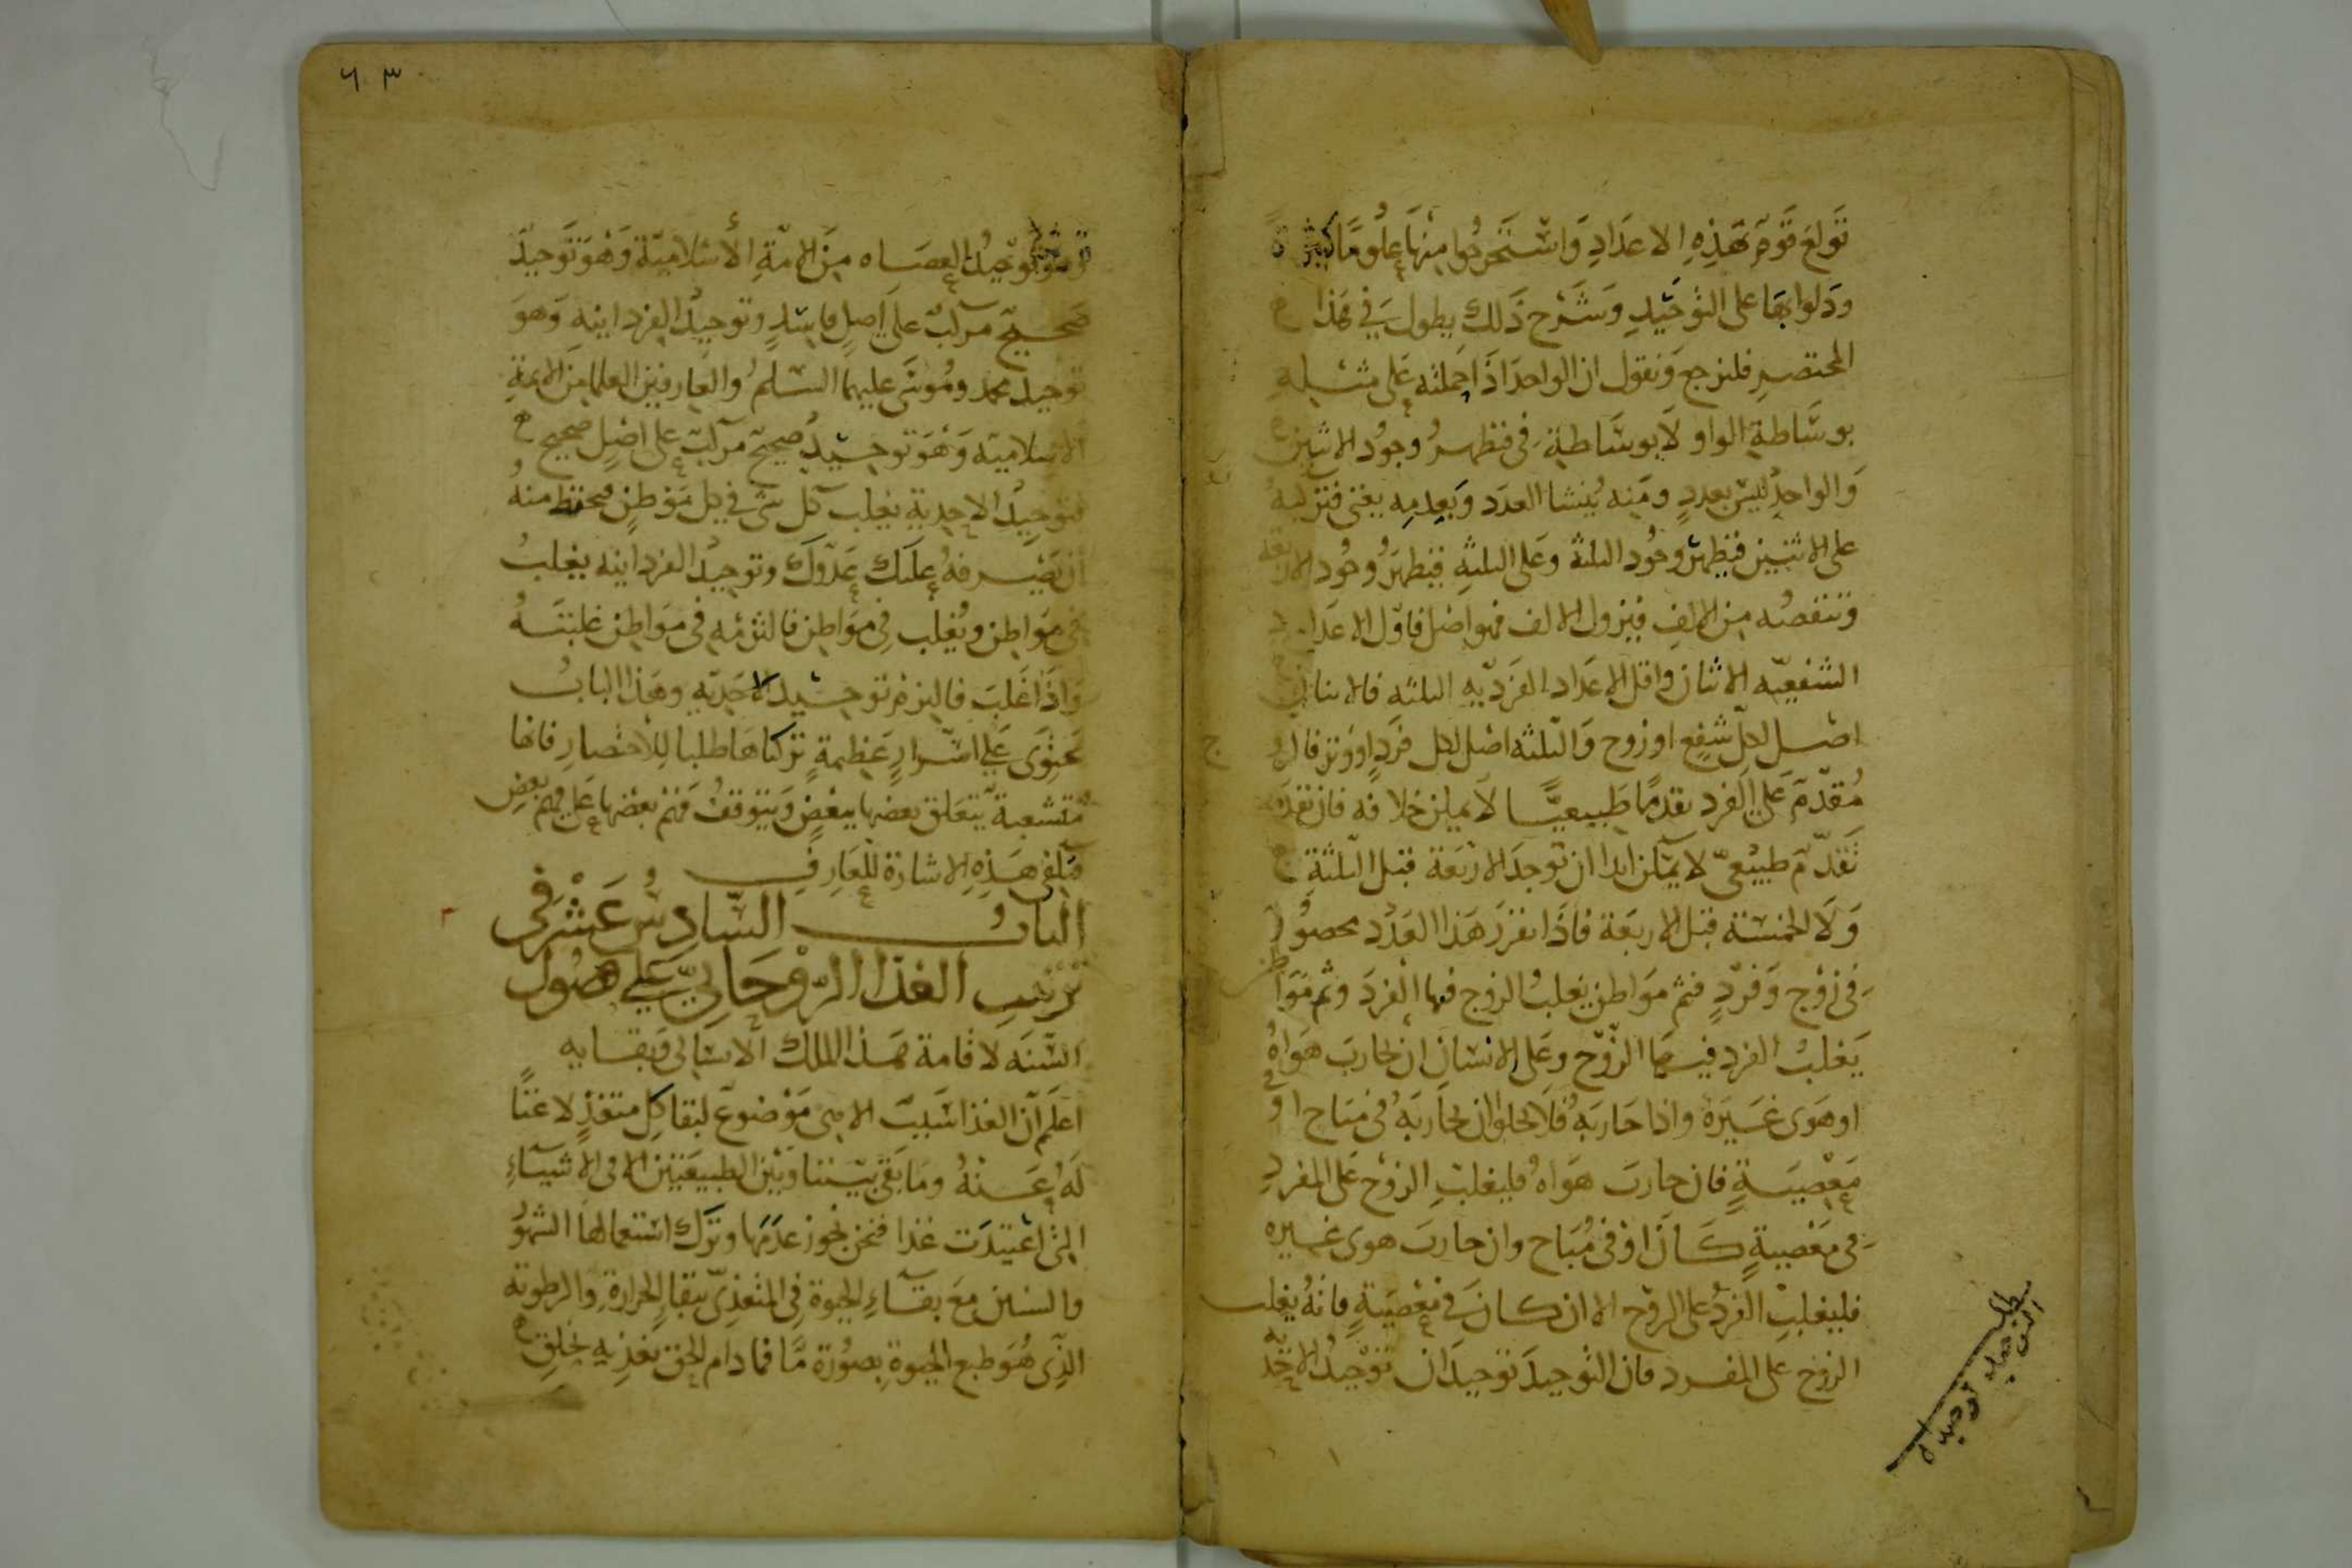 تولع قوم بهذه الاعداد واستخرجوا منها علوما كثيرة
ودلوا بها على التوحيد وشرح ذلك يطول في هذا
المختصر فلنرجع ونقول ان الواحد اذا حملته على مثله
بوساطة الواو لا بوساطة في فظهر وجود الاثنين
والواحد ليس بعدد ومنه ينشا العدد وبعدمه يفنى فنزليه
على الاثنين فيظهر وجود الثلثة وعلى الثلثة فيظهر وجود الاربعة
وتنقصه من الالف فيزول الالف فهو اصل فاول الاعداد
الشفعيه الاثنان واقل الاعداد الفرديه الثلثه فالاثنان
اصل لكل شفع او زوج والثلثه اصل لكل فرد او وتر فالزوج
مقدم على الفرد تقدما طبيعيا لا يمكن خلافه فان تقدمه
تقدم طبيعي لا يمكن ابدا ان توجد الاربعة قبل الثلثة
ولا الخمسة قبل الاربعة فاذا تقرر هذا العدد محصور
في زوج وفرد فثم مواطن يغلب الزوج فيها الفرد وثم مواطن
يغلب الفرد فيها الزوج وعلى الانسان ان يحارب هواه
او هوى غيره واذا حاربه فلا يخلو ان يحاربه في مباح او في
معصية فان حارب هواه فليغلب الزوج على المفرد
في معصية كان او في مباح وان حارب هوى غيره
فليغلب الفرد على الزوج الا ان كان في معصية فانه يغلب
الزوج على المفرد فان التوحيد توحيدان توحيد الاحدية
مطلب
التوحيد توحيدان
٦٣
وهو توحيد العصاه من الامة الاسلامية وهو توحيد
صحيح مركب على اصل فاسد وتوحيد الفردانيه وهو
توحيد محمد وموسى عليهما السلم والعارفين العلما من الامة
الاسلامية وهو توحيد صحيح مركب على اصل صحيح
فتوحيد الاحدية يغلب كل شي في كل موطن فتحفظ منه
ان يصرفه عليك عدوك وتوحيد الفردانيه يغلب
في مواطن ويغلب في مواطن فالتزمه في مواطن غلبته
واذا غلب فالتزم توحيد الاحديه وهذا الباب
يحتوى على اسرار عظيمة تركناها طلبا للاختصار فانها
متشعبة يتعلق بعضها ببعض ويتوقف فهم بعضها على فهم بعض
فتكفي هذه الاشارة للعارف
الباب السادس عشر في
ترتيب الغذا الروحاني على فصول
السنه لاقامة هذا الملك الانساني وبقايه
اعلم ان الغذا سبب الاهى موضوع لبقا كل متغذ لا غنا
له عنه وما بقى بيننا وبين الطبيعيين الا في الاشياء
التي اعتيدت غذا فنحن نجوز عدمها وترك استعمالها الشهور
والسنين مع بقاء الحيوة في المتغذى ببقا الحرارة والرطوبة
الذى هو طبع الحيوة بصورة ما فما دام الحق يغذيه بخلق